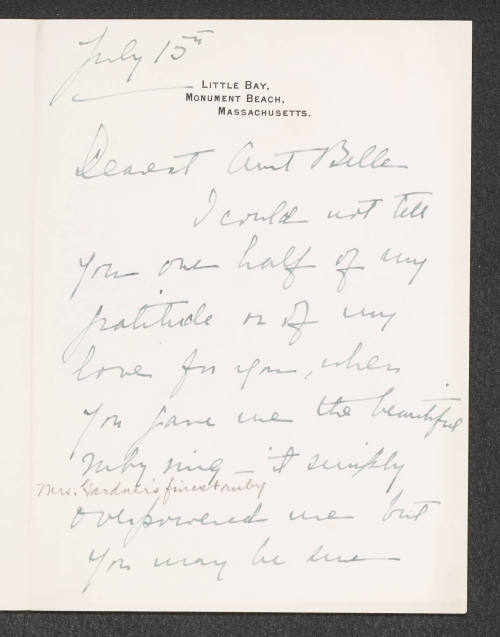 July 15th
Little Bay,
Monument Beach,
Massachusetts.
Dearest Aunt Belle
I could not tell
you one half of my
gratitude or of my
love for you, when
you gave me the beautiful
ruby ring – it simply
Mrs. Gardner's finest ruby
overpowered me but
you may be sure